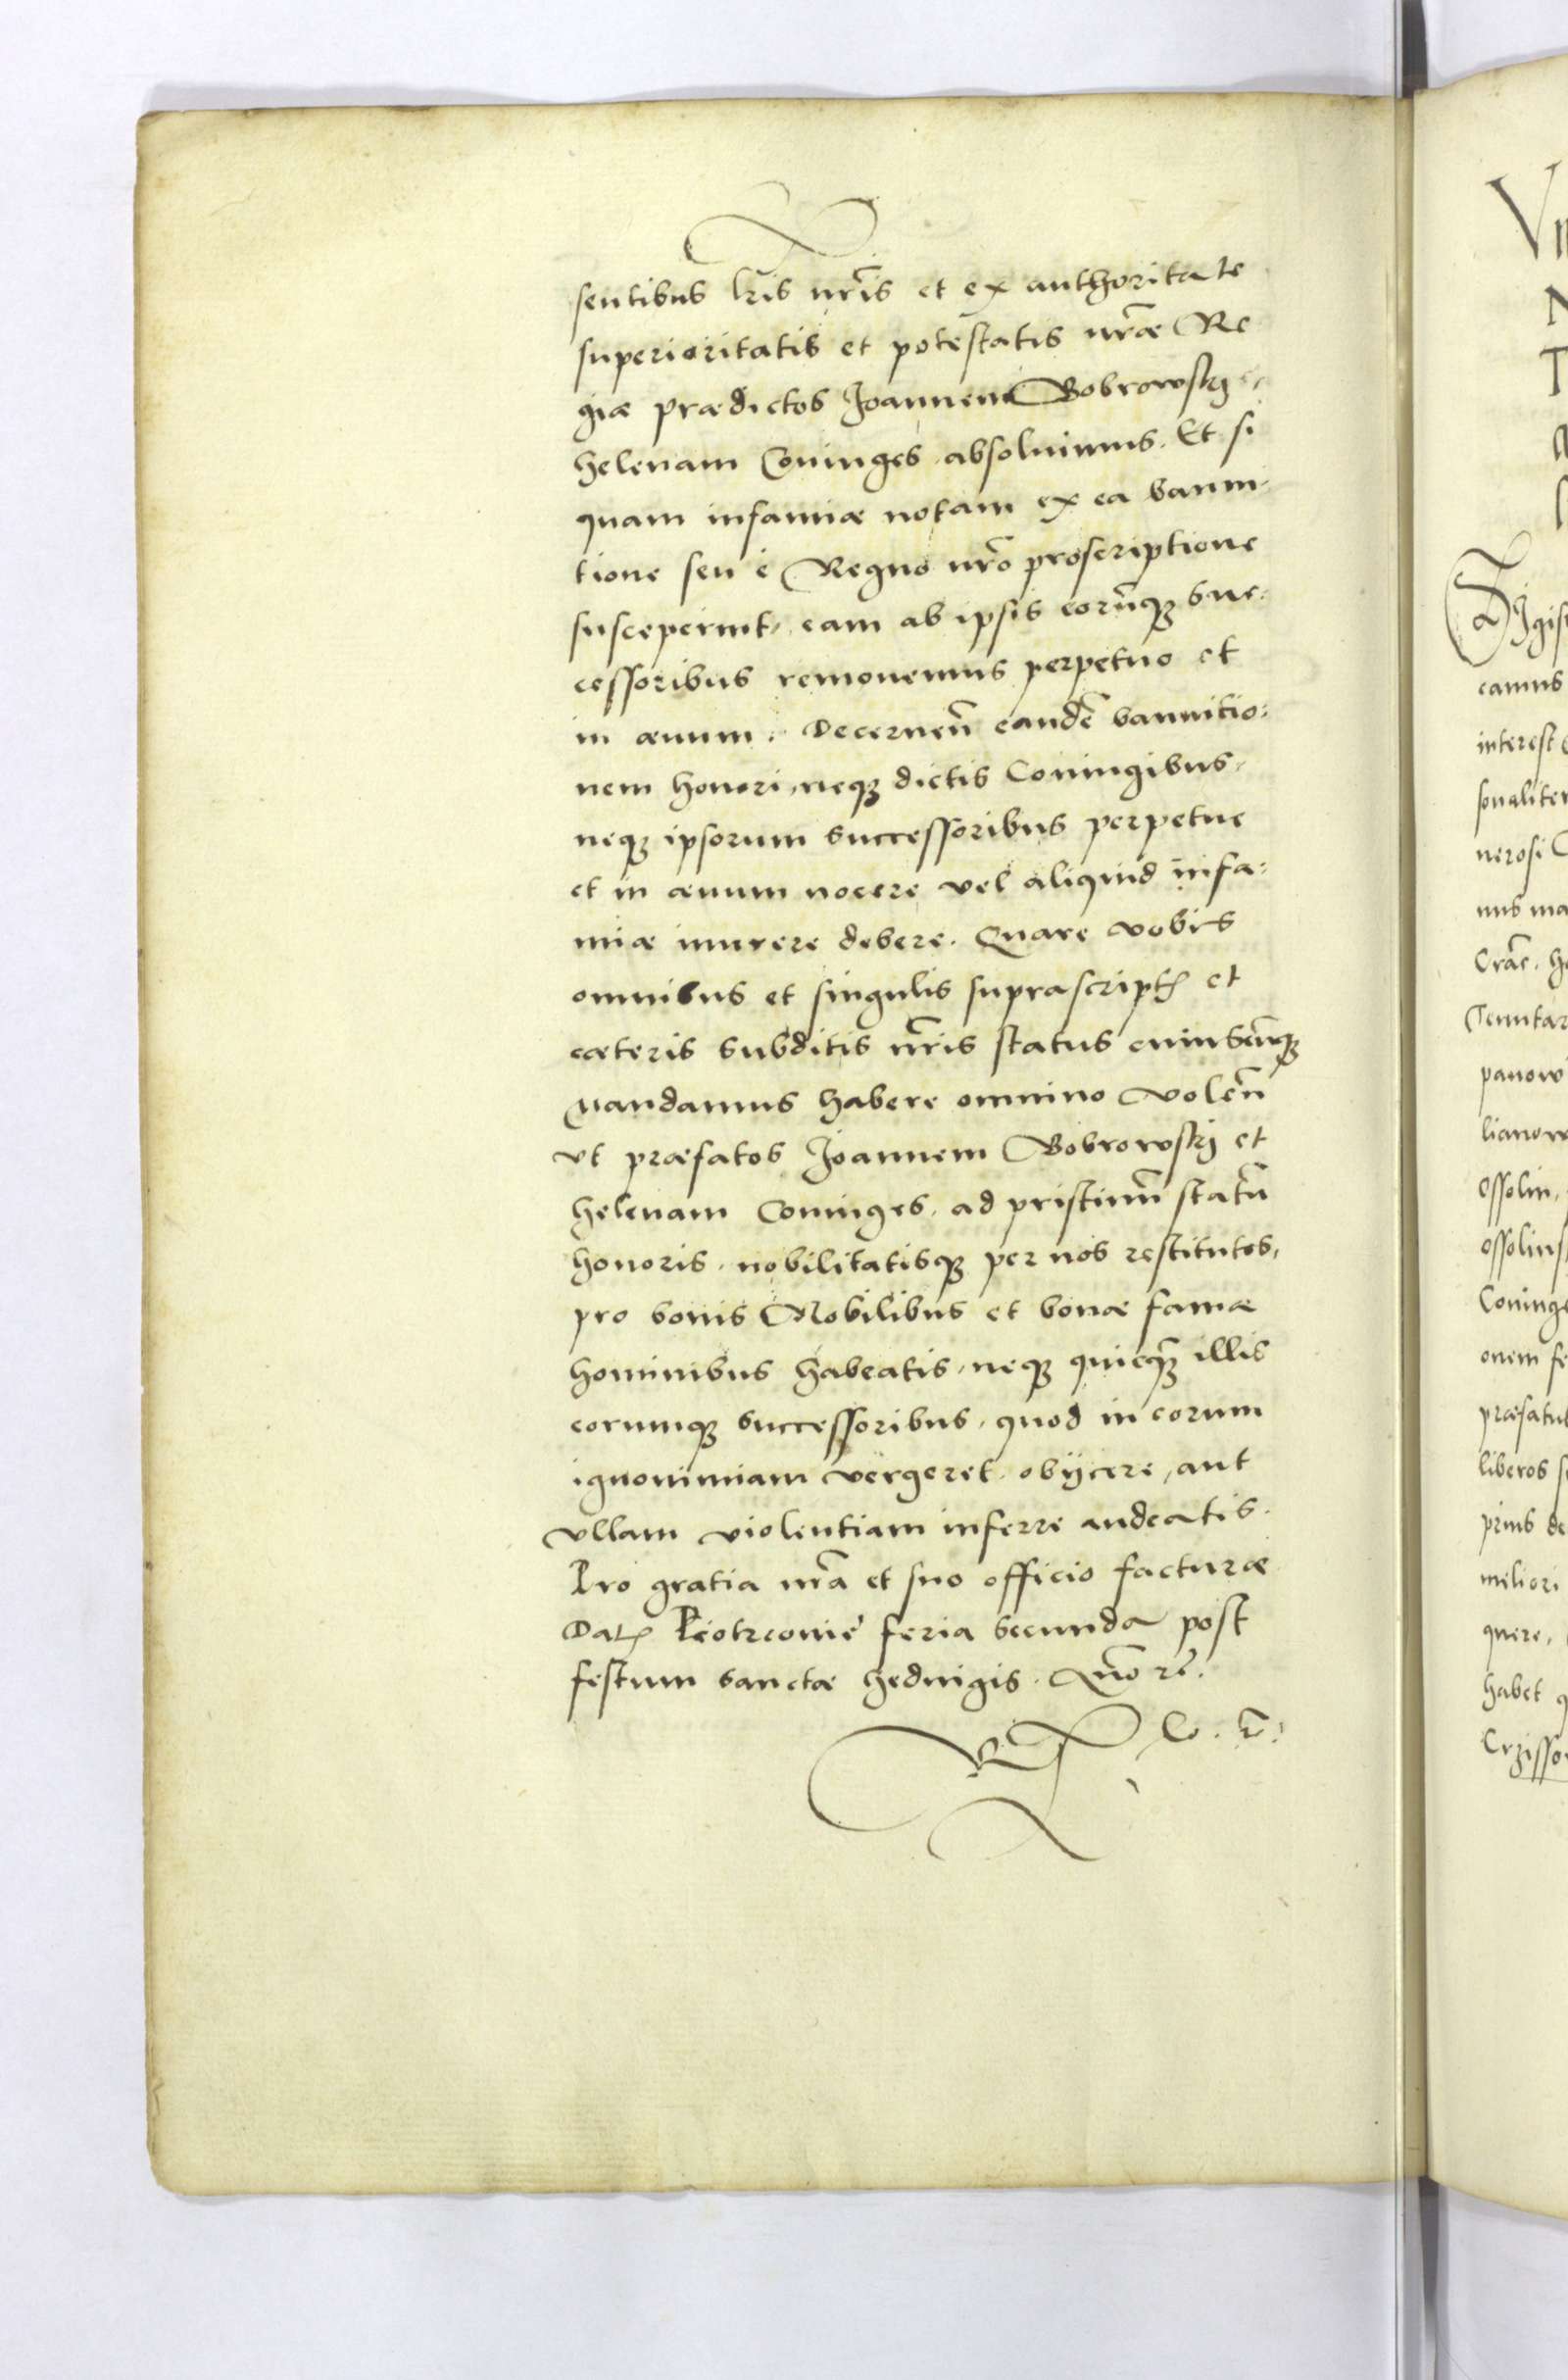 sentibus lris nr̃is et ex authoritate
superioritatis et potestatis nr̃æ Re
giæ prædictos Joannem Bobrowskj et
helenam Coniuges absoluimus. Et si
quam infamiæ notam ex ea banni-
tione seu è Regno nr̃o proscriptione
susceperint, eam ab ipsis eorũq3 suc:
cessoribus remouemus perpetuo et
in æuum. Decerneñ eandẽ bannitio:
nem honori, neq3 dictis Coniugibus,
neq3 ipsorum successoribus perpetue
et in æuum nocere vel aliquid infa:
miæ inurere debere. Quare vobis
omnibus et singulis suprascript) et
cæteris subditis nr̃is status cuiuscũq3
Mandamus habere omnino Voleñ
vt præfatos Joannem Bobrowskj et
helenam Coniuges, ad pristinũ statũ
honoris, nobilitatisq3 per nos restitutos,
pro bonis Nobilibus et bonæ famæ
hominibus habeatis, neq3 quicq̃3 illis
eorumq3 successoribus, quod in eorum
ignominiam vergeret, obijcere, aut
vllam violentiam inferre audeatis.
Pro gratia nr̃a et suo officio facturæ
Dat) Piotrconiẽ feria secunda post
festum sanctæ heduigis. Año
Vi
N
T
Sigis
camus
interest
sonaliter
nerosi
nus ma
Crãc. h
Tenutar
panow
lianow
Ossolin,
Ossolins
Coniuge
onem fe
præfatus
liberos s
prius de
meliori
quere,
habet q
Crzisso